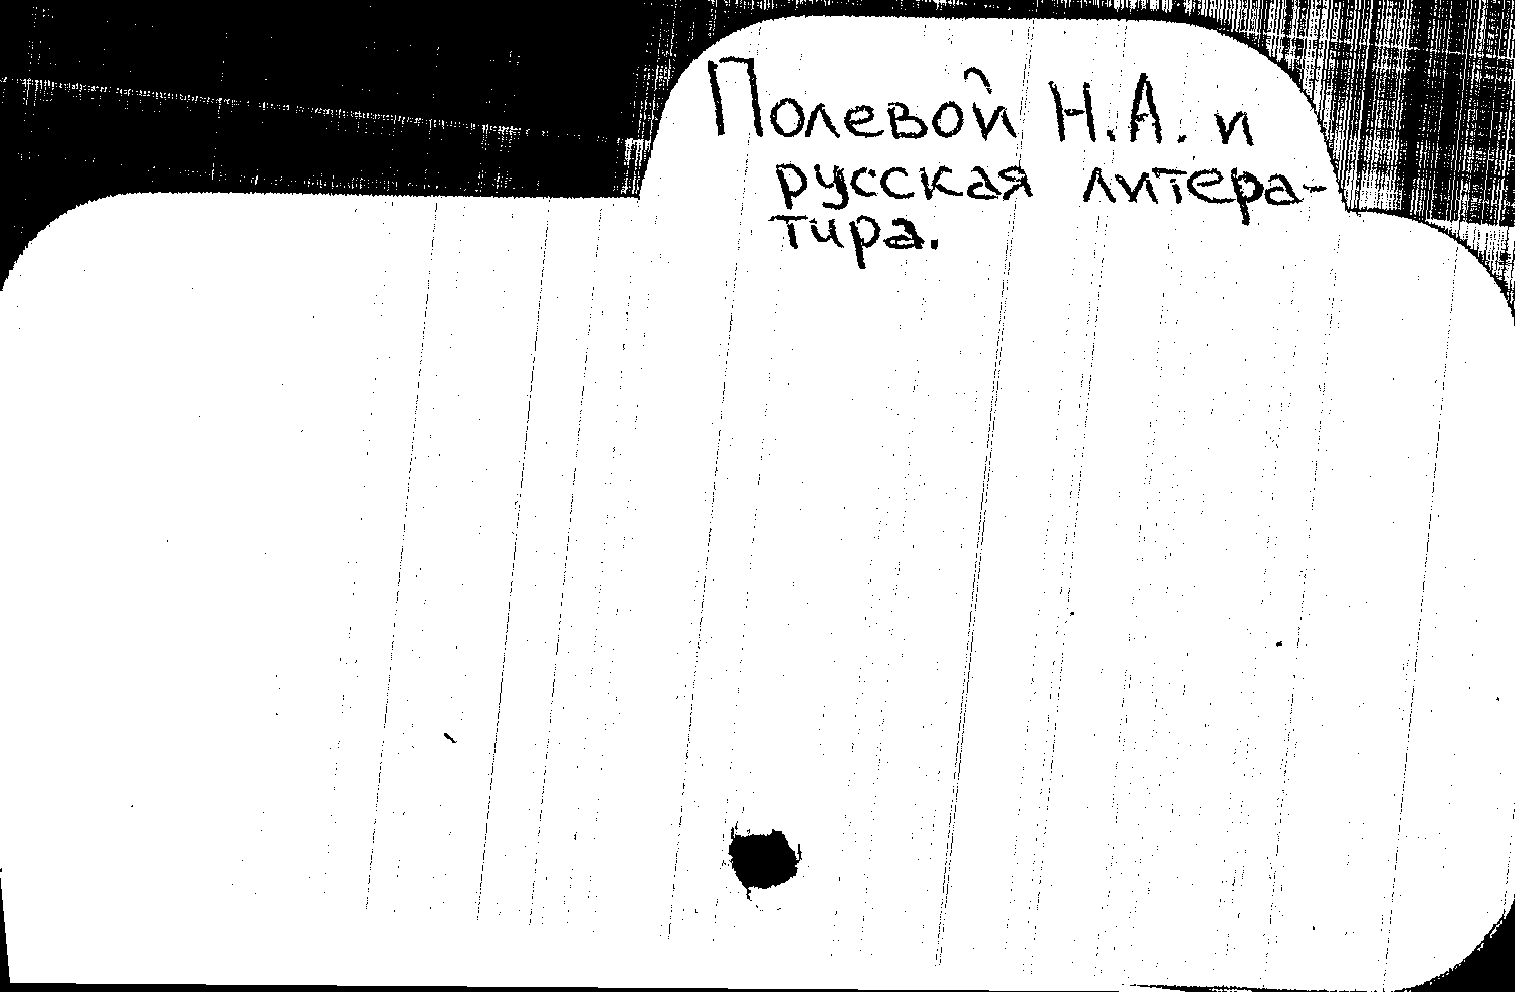 Полевой Н.А. и
русская литера-
тура.